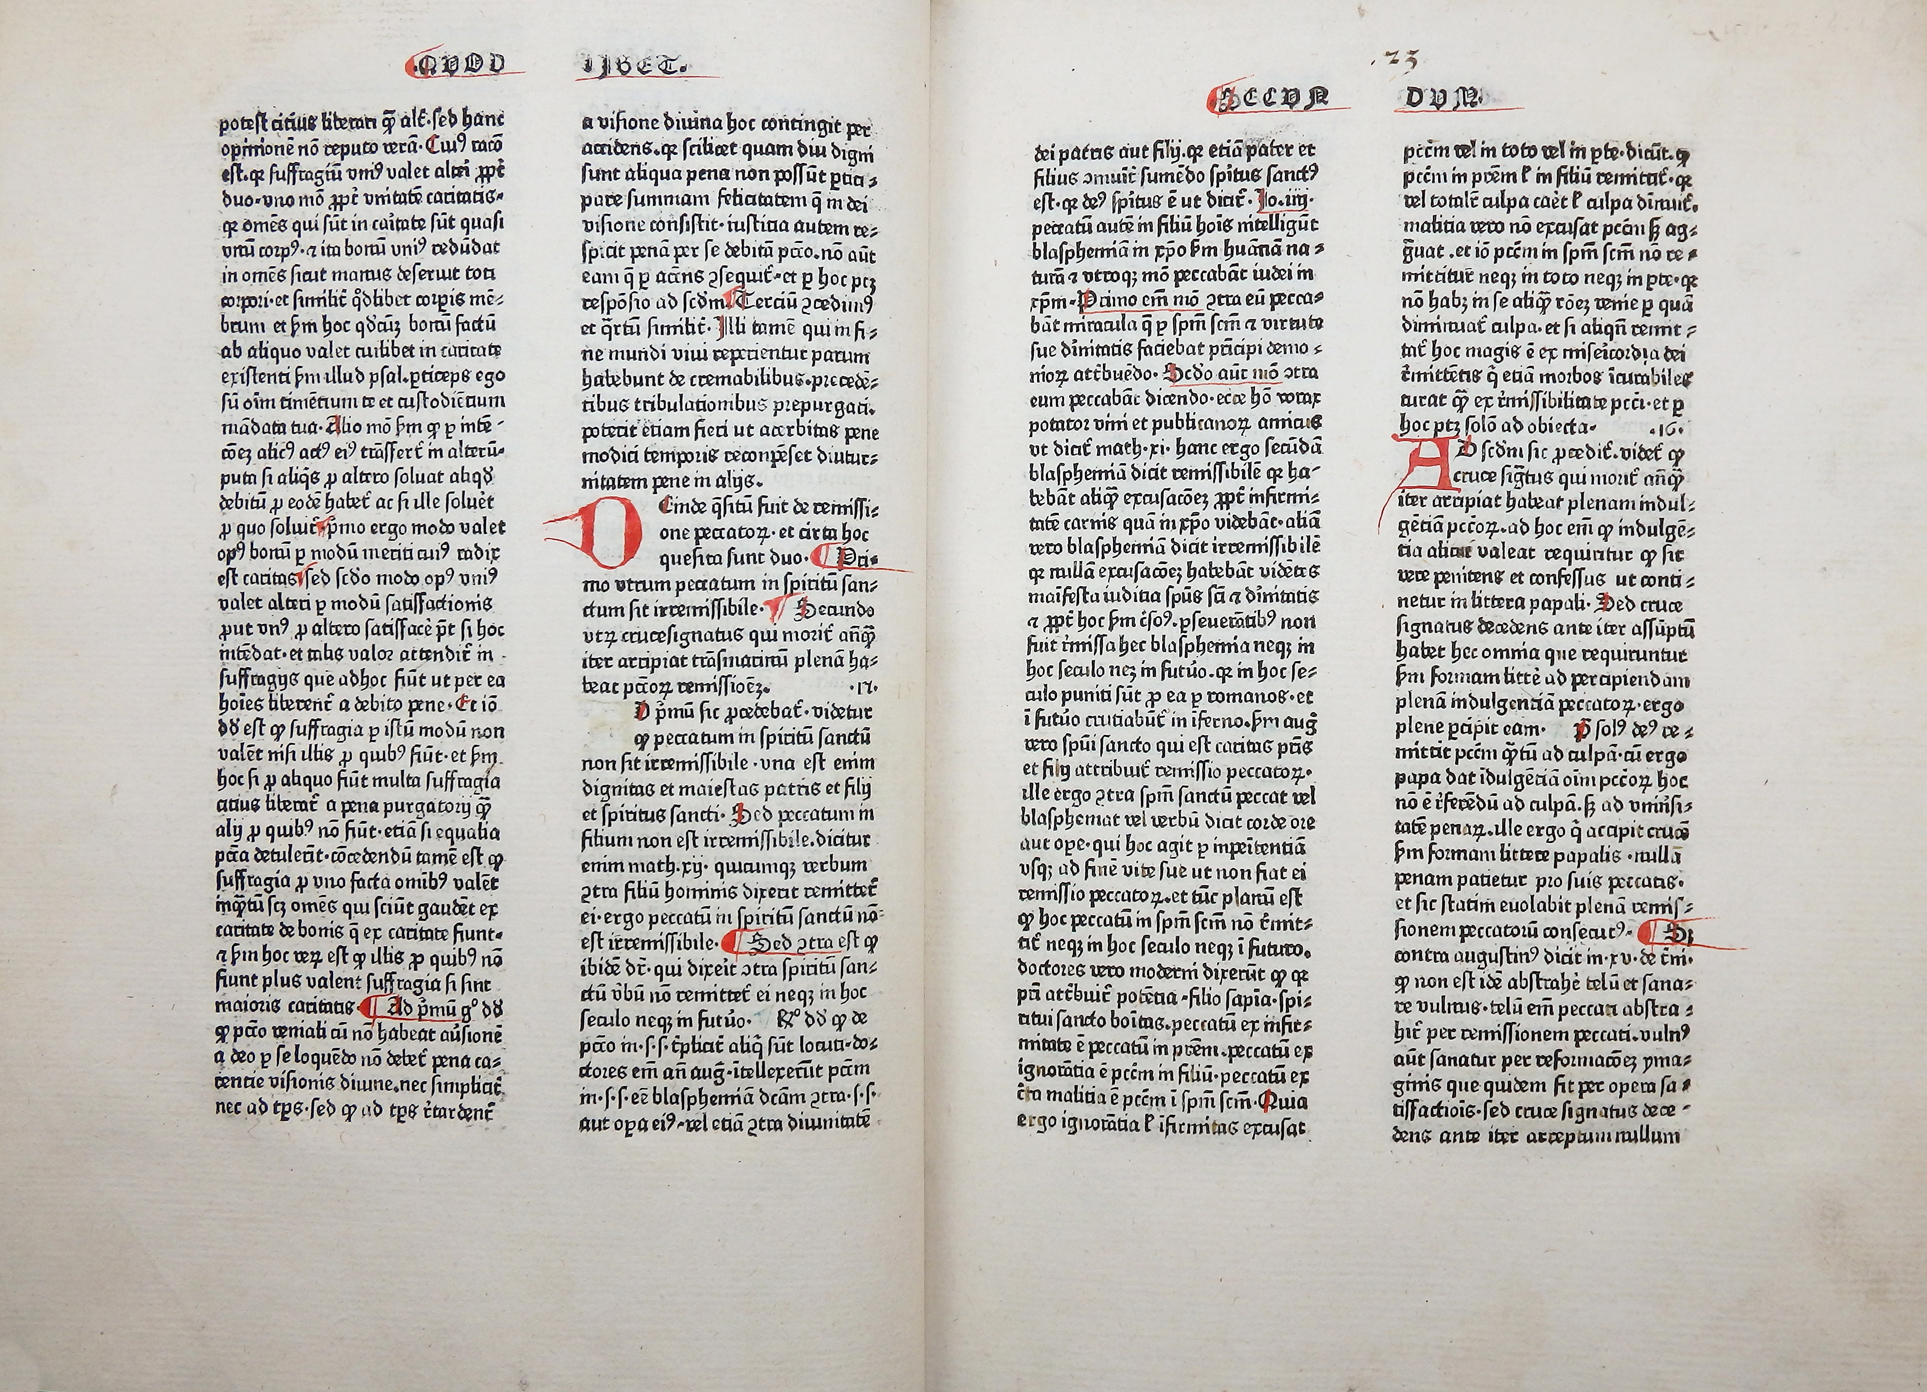 QVOD LIBET.
potest citius liberari q̃ alt̃·sed hanc
opinionẽ nõ reputo verã· Cui⁹ racõ
est·qꝛ suffragiũ vni⁹ valet alteri ꝓpt̃
duo·vno mõ ꝓpt̃ vnitatẽ caritatis·
qꝛ omẽs qui sũt in caĩtate sũt quasi
vnũ corp⁹·⁊ ita bonũ vni⁹ redũdat
in omẽs sicut manus deseruit toti
corpori·et similit̃ q̊dlibet corꝑis mẽ-
brum et ẜm hoc qđcũqꝫ bonũ factũ
ab aliquo valet cuilibet in caritate
existenti ẜm illud psal·ꝑticeps ego
sũ oĩm timẽtium te et custodiẽtium
mãdata tua· Alio mõ ẜm qꝙ ꝑ intẽ-
cõeꝫ alic⁹ act⁹ ei⁹ trãsfert̃ in alterũ·
puta si aliq̃s ꝓ altero soluat aliqđ
debitũ ꝓ eodẽ habet̃ ac si ille soluẽt
ꝓ quo soluit̃·p̃mo ergo modo valet
op⁹ bonũ ꝑ modũ meriti cui⁹ radix
est caritas sed scđo modo op⁹ vni⁹
valet alteri ꝑ modũ satisfactionis
ꝓut vn⁹ ꝓ altero satisfacẽ p̃t si hoc
intẽdat·et talis valor attendit̃ in
suffragijs que adhoc fiũt ut per ea
hoĩes liberent̃ a debito pene· Et iõ
dđ est ꝙ suffragia ꝑ istũ modũ non
valẽt nisi illis ꝓ quib⁹ fiũt·et ẜm
hoc si ꝓ aliquo fiũt multa suffragia
citius liberat̃ a pena purgatorij q̃ꝫ
alij ꝓ quib⁹ nõ fiũt·etiã si equalia
pctã detulerĩt·cõcedendũ tamẽ est ꝙ
suffragia ꝓ vno facta omĩb⁹ valẽt
inq̃tũ scꝫ omẽs qui sciũt gaudẽt ex
caritate de bonis q̃ ex caritate fiunt·
⁊ ẜm hoc veꝝ est ꝙ illis ꝓ quib⁹ nõ
fiunt plus valent suffragia si sint
maioris caritatis· Ad p̃mũ g° dđ
ꝙ pctõ veniali cũ nõ habeat aũsionẽ
a deo ꝑ se loquẽdo nõ debet̃ pena ca-
rentie visionis diuine·nec simplicit̃
nec ad tp̃s·sed ꝙ ad tp̃s r̃tardent̃
a visione diuina hoc contingit per
accidens·qꝛ scilicet quam diu digni
sunt aliqua pena non possũt ꝑtici-
pare summam felicitatem q̃ in dei
visione consistit·iusticia autem re-
spicit penã per se debitã pctõ·nõ aũt
eam q̃ ꝑ accñs ꝯsequit̃·et ꝑ hoc ptꝫ
respõsio ad scđm Terciũ ꝯcedim⁹
et q̃rtũ similit̃· Illi tamẽ qui in fi-
ne mundi viui reperientur parum
habebunt de cremabilibus·precedẽ-
tibus tribulationibus prepurgati·
poterit etiam fieri ut acerbitas pene
modici temporis recompẽset diutur-
nitatem pene in alijs·
DEinde q̃sitũ fuit de remissi-
one peccatoꝝ·et circa hoc
quesita sunt duo· Pri-
mo vtrum peccatum in spiritũ san-
ctum sit irremissibile· Secundo
vtꝝ crucesignatus qui morit̃ añq̃ꝫ
iter arripiat trãsmarinũ plenã ha-
beat pctõꝝ remissioẽꝫ·
D p̃mũ sic ꝓcedebat̃·videtur
ꝙ peccatum in spiritũ sanctũ
non sit irremissibile·vna est enim
dignitas et maiestas patris et filij
et spiritus sancti· Sed peccatum in
filium non est irremissibile·dicitur
enim math·xij·quicumqꝫ verbum
ꝯtra filiũ hominis dixerit remittet̃
ei·ergo peccatũ in spiritũ sanctũ nõ-
est irremissibile· Sed ꝯtra est ꝙ
ibidẽ dr̃·qui dixeĩt ꝯtra spiritũ san-
ctũ v̆bũ nõ remittet̃ ei neqꝫ in hoc
seculo neqꝫ in futũo· R° dđ ꝙ de
pctõ in·s·s·t̃plicit̃ aliq̃ sũt locuti·do-
ctores em̃ añ aug̃·ĩtellexerũt pctm̃
in·s·s·eẽ blasphemiã dcãm ꝯtra·s·s·
aut oꝑa ei⁹·vel etiã ꝯtra diuinitatẽ
23
SECVN DVM·
dei patris aut filij·qꝛ etiã pater et
filius ꝯmuĩt̃ sumẽdo spĩtus sanct⁹
est·qꝛ de⁹ spĩtus ẽ ut dicit̃· Jo·iiij·
peccatũ autẽ in filiũ hoĩs intelligũt
blasphemiã in xp̃o ẜm huãnã na-
turã ⁊ vtroqꝫ mõ peccabãt iudei in
xp̃m· Primo em̃ mõ ꝯtra eũ pecca-
bãt miracula q̃ ꝑ spm̃ scm̃ ⁊ virtute
sue diĩnitatis faciebat prĩcipi demo-
nioꝝ att̃buẽdo· Scđo aũt mõ ꝯtra
eum peccabãt dicendo·ecce hõ vorax
potator vini et publicanoꝝ amicus
ut dicit̃ math·xi·hanc ergo secũdã
blasphemiã dicit remissibilẽ qꝛ ha-
bebãt aliq̃ꝫ excusacõeꝫ ꝓpt̃ infirmi-
tatẽ carnis quã in xp̃o videbãt·aliã
vero blasphemiã dicit irremissibilẽ
qꝛ nullã excusacõeꝫ habebãt vidẽtes
maĩfesta iuditia spũs scĩ ⁊ diĩnitatis
⁊ ꝓpt̃ hoc ẜm cr̃so⁹·ꝑseuerãtib⁹ non
fuit r̃missa hec blasphemia neqꝫ in
hoc seculo neꝫ in futũo·qꝛ in hoc se-
culo puniti sũt ꝓ ea ꝑ romanos·et
ĩ futũo crutiabũt̃ in ĩferno·ẜm aug̃
vero spũi sancto qui est caritas pr̃is
et filij attribuit̃ remissio peccatoꝝ·
ille ergo ꝯtra spm̃ sanctũ peccat vel
blasphemat vel verbũ dicit corde ore
aut oꝑe·qui hoc agit ꝑ inpeĩtentiã
vsqꝫ ad finẽ vite sue ut non fiat ei
remissio peccatoꝝ·et tũc planũ est
ꝙ hoc peccatũ in spm̃ scm̃ nõ r̃mit-
tit̃ neqꝫ in hoc seculo neqꝫ ĩ futuro·
doctores vero moderni dixerũt ꝙ qꝛ
pr̃i att̃buit̃ potẽtia·filio sapĩa·spi-
ritui sancto boĩtas·peccatũ ex infir-
mitate ẽ peccatũ in pr̃em·peccatũ ex
ignorãtia ẽ pctm̃ in filiũ·peccatũ ex
cr̃ta malitia ẽ pctm̃ ĩ spm̃ scm̃· Quia
ergo ignorãtia ł ĩfirmitas excusat
pctm̃ vel in toto vel in ꝑte·dicũt·ꝙ
pctm̃ in pr̃em ł in filiũ remittit̃·qꝛ
vel totalr̃ culpa caret ł culpa dimuit̃·
malitia vero nõ excusat pctm̃ sꝫ ag-
g̃uat·et iõ pctm̃ in spm̃ scm̃ nõ re-
mittitur̃ neqꝫ in toto neqꝫ in ꝑte·qꝛ
nõ habꝫ in se aliq̃ꝫ rõeꝫ venie ꝑ quã
dimituat̃ culpa·et si aliqñ remit-
tat̃ hoc magis ẽ ex miseĩcordia dei
r̃mittẽtis q̃ etiã morbos ĩcurabiles
curat q̃ꝫ ex r̃missibilitate pctĩ·et ꝑ
hoc ptꝫ solõ ad obiecta· ·16·
AD scđm sic ꝓcedit̃·videt̃ ꝙ
cruce sig̃tus qui morit̃ añq̃ꝫ
iter arripiat habeat plenam indul-
gẽtiã pctõꝝ·ad hoc em̃ ꝙ indulgẽ-
tia alicui valeat requiritur ꝙ sit
vere penitens et confessus ut conti-
netur in littera papali· Sed cruce
signatus decedens ante iter assũptũ
habet hec omnia que requiruntur
ẜm formam littẽ ad percipiendam
plenam indulgentiã peccatoꝝ·ergo
plene ꝑcipit eam· P̃ sol⁹ de⁹ re-
mittit pctm̃ q̃tũ ad culpã·cũ ergo
papa dat ĩdulgẽtiã oĩm pctõꝝ hoc
nõ ẽ r̃ferẽdũ ad culpã·sꝫ ad vniũsi-
tatẽ penaꝝ·ille ergo q̃ accipit crucẽ
ẜm formam littere papalis·nullã
penam patietur pro suis peccatis·
et sic statim euolabit plenã remis-
sionem peccatorũ consecut⁹· Sꝫ
contra augustin⁹ dicit in·xv·de tr̃ni·
ꝙ non est idẽ abstrahẽ telũ et sana-
re vulnus·telũ em̃ peccati abstra-
hit̃ per remissionem peccati·vuln⁹
aũt sanatur per reformacõeꝫ yma-
ginis que quidem fit per opera sa-
tisfactiois̃·sed cruce signatus dece-
dens ante iter arreptum nullum